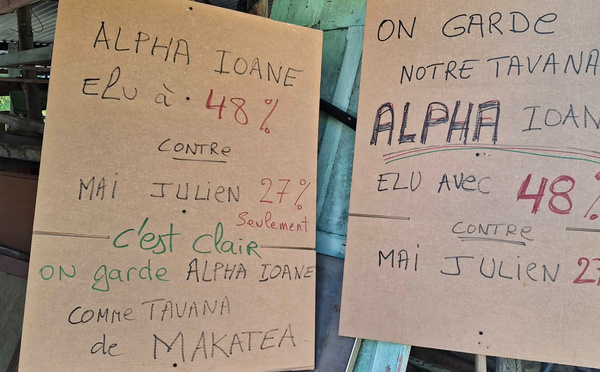 ALPHA IOANE
ELU à 48%
CONTRE
MAI JULIEN 27%
Seulement
c'est clair
ON garde ALPHA IOANE
comme TAVANA
de MAKATEA
ON GARDe
NOTRE TAVANA
ALPHA IOAN
ELU AVEC 48%
CONTRE
MAI JULIEN 27